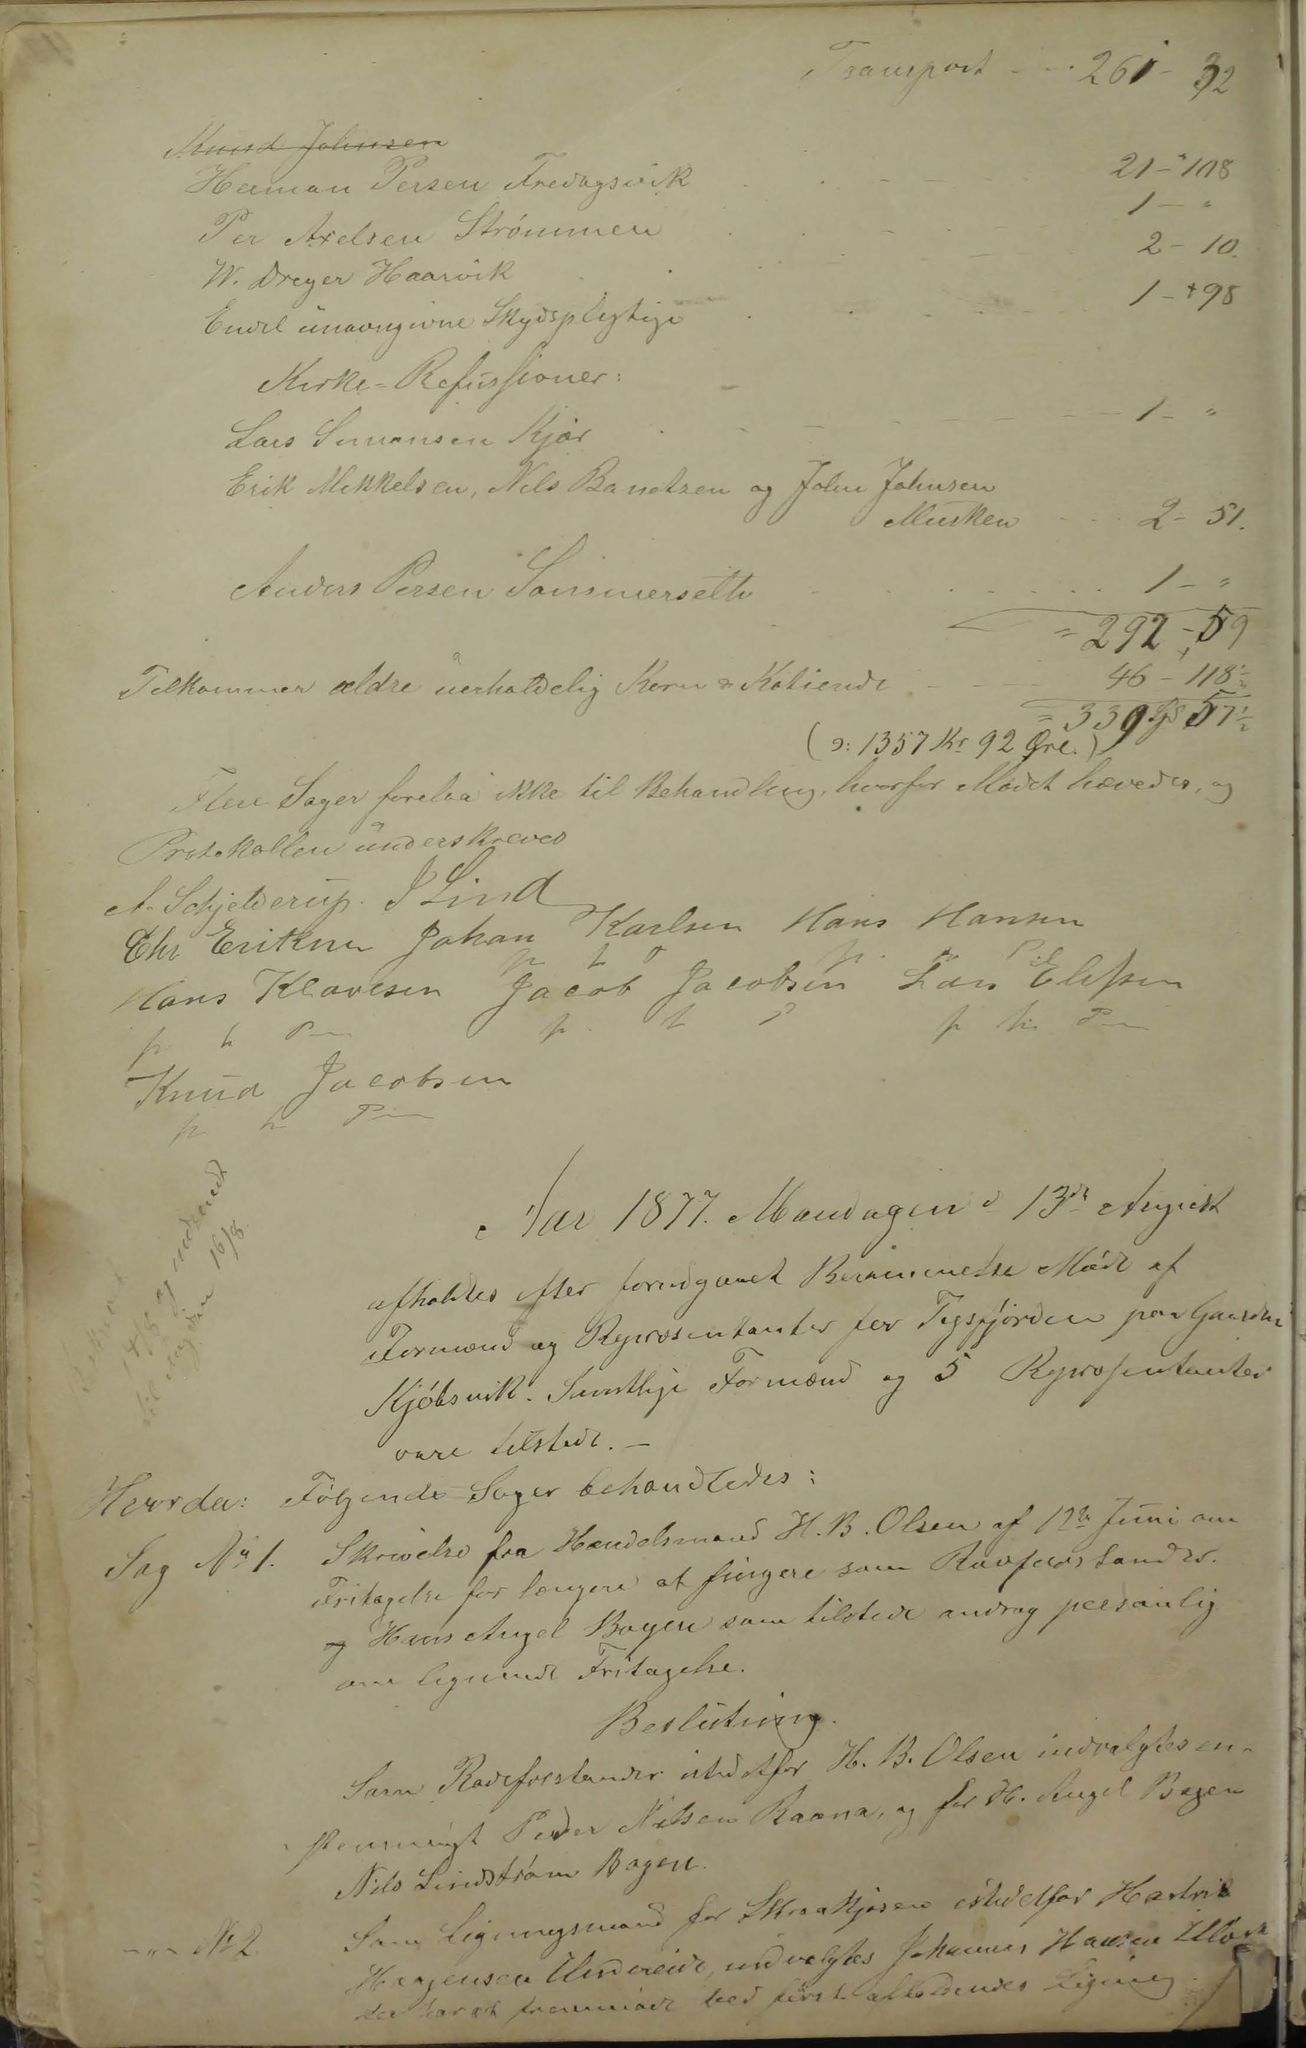 Transport - - - 261 - 32
Knud Johnsen
Herman Persen Fredagsvik 21 - 108
Per Axelsen Strømmen 1 - "
W. Dreyer Haarvik 2 - 10.
Endel unavngivne Skydspligtige 1 - 98
Kirke-Refussioner:
Lars Simonsen Kjær 1 - "
Erik Mikkelsen, Nils Bandtzen og John Johnsen
Musken - - - 2 - 51.
Anders Persen Sommersette 1 - "
= 292 - 59
Tilkommer ældre uerholdelig Korn & Kotiende 46 - 118½
= 339 Spd 57½
(ɔ: 1357 Kr 92 Øre.)
Flere Sager forelaa ikke til Behandling, hvorfor Mødet hævedes, og
Protokollen underskreves
A. Schjelderup. J Lind
Chr Eriksen Johan Karlsen Hans Hansen
Hans Klavesen Jacob Jacobsen Lars Elissen
p h P p h P p h P
Knud Jacobsen
p h P
14/8 og
16/8
Aar 1877. Mandagen d 13de August
afholdtes efter foregaaet Berammelse Møde af
Formænd og Repræsentanter for Tysfjorden paa Gaarden
Kjøbsvik. Samtlige Formænd og 5 Repræsentanter
vare tilstede. -
Hvorda: Følgende Sager behandledes:
Sag No 1. Skrivelse fra Handelsmand H. B. Olsen af 12te Juni om
Fritagelse for længere at fungere som Rodeforstander.
og Hans Angel Bogen som tilstede androg personlig
om lignende Fritagelse.
Beslutning.
Som Rodeforstander istedetfor H. B. Olsen indvalgtes en-
stemmigt Peder Nilsen Raana, og for H. Angel Bogen
Nils Lindstrøm Bogen.
- " - No 2. Som Ligningsmand for istedetfor Hartvik
indvalgtes Johannes Hansen
fremmøde ved første afholdendes Ligning